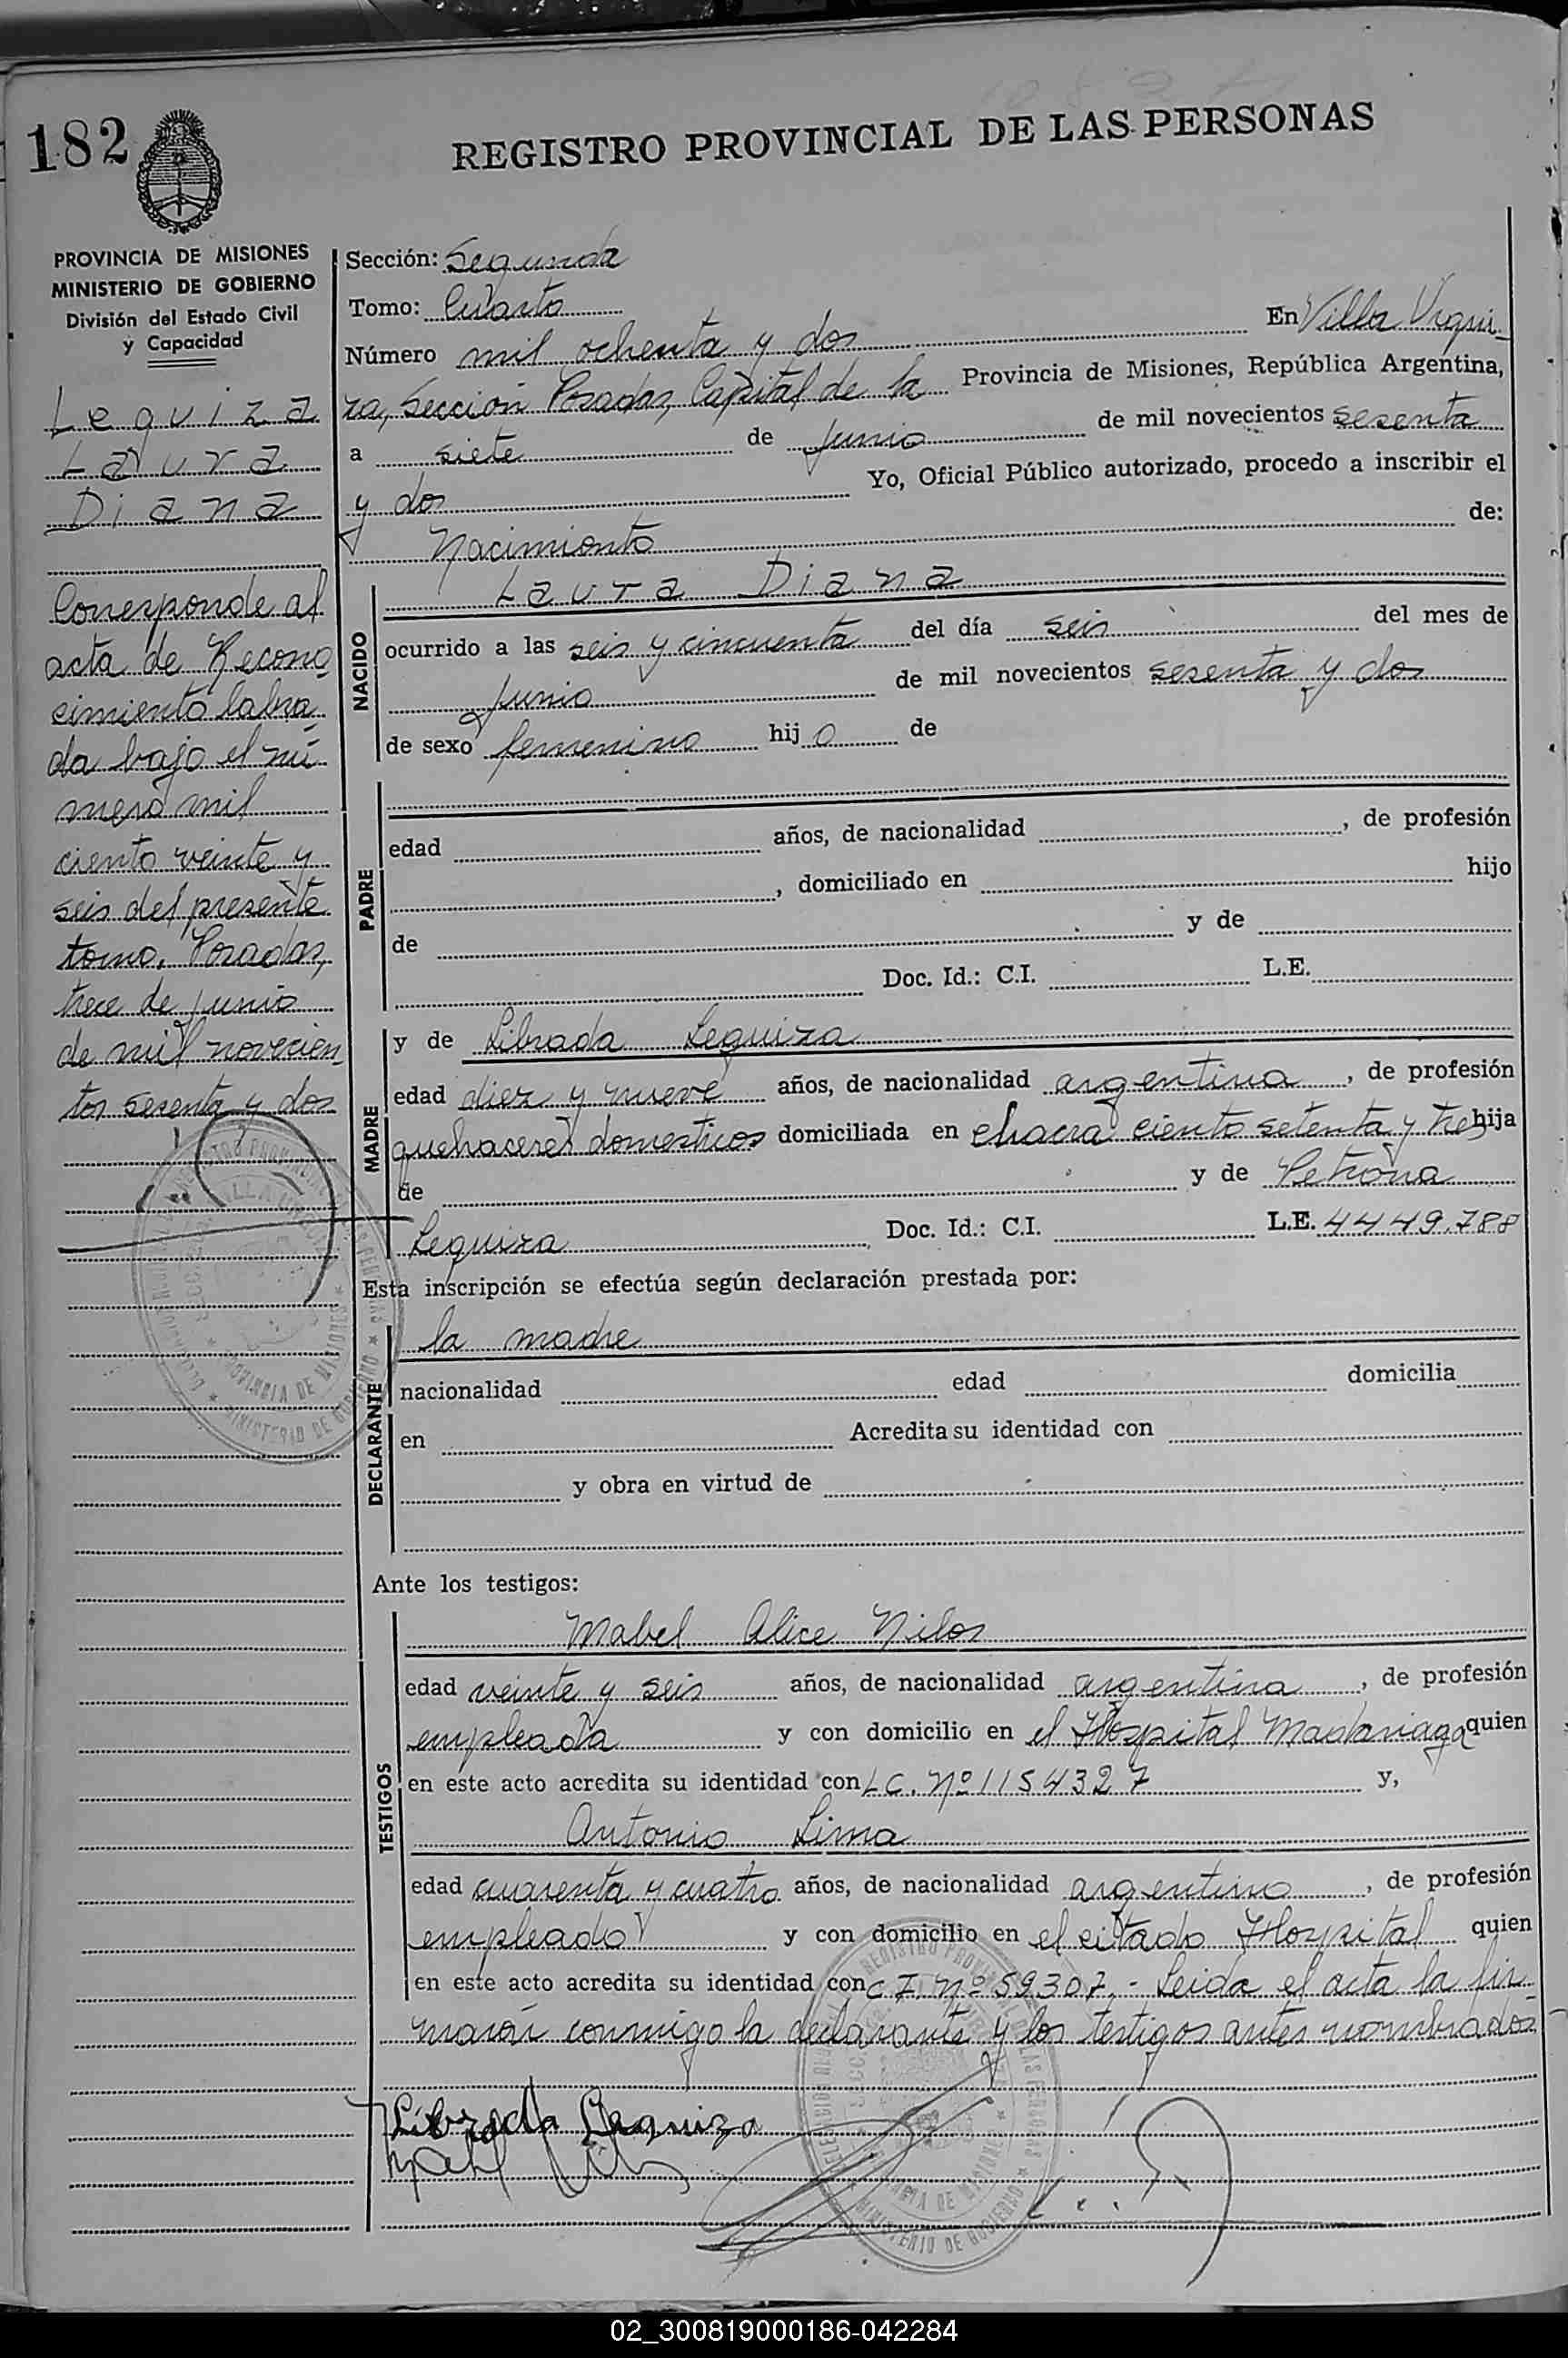 182
REGISTRO PROVINCIAL DE LAS PERSONAS
PROVINCIA DE MISIONES
MINISTERIO DE GOBIERNO
División del Estado Civil
y Capacidad
Leguiza
Laura
Diana
Corresponde al
acta de Recono
cimiento labra-
da bajo el nú-
mero mil
ciento veinte y
seis del presente
tomo. Posadas,
trece de junio
de mil novecien
tos sesenta y dos
Sección: Segunda
Tomo: Cuarto
Número mil ochenta y dos En Villa Urqui-
za, Sección Posadas, Capital de la Provincia de Misiones, República Argentina,
a siete de junio de mil novecientos sesenta
y dos Yo, Oficial Público autorizado, procedo a inscribir el
Nacimiento de:
NACIDO
Laura Diana
ocurrido a las seis y cincuenta del día seis del mes de
junio de mil novecientos sesenta y dos
de sexo femenino hij o de
PADRE
edad años, de nacionalidad , de profesión
, domiciliado en hijo
de y de
Doc. Id.: C.I. L.E.
MADRE
y de Librada Leguiza
edad diez y nueve años, de nacionalidad argentina , de profesión
quehaceres domesticos domiciliada en chacra ciento setenta y tres hija
de y de Petrona
Leguiza Doc. Id.: C.I. L.E. 4449.788
Esta inscripción se efectúa según declaración prestada por:
DECLARANTE
la madre
nacionalidad edad domicilia
en Acredita su identidad con
y obra en virtud de
Ante los testigos:
TESTIGOS
Mabel Alice Nilos
edad veinte y seis años, de nacionalidad argentina , de profesión
empleada y con domicilio en el Hospital Madariaga quien
en este acto acredita su identidad con L C. Nº 1154327 y,
Antonio Lima
edad cuarenta y cuatro años, de nacionalidad argentino , de profesión
empleado y con domicilio en el citado Hospital quien
en este acto acredita su identidad con C I. Nº 59307.- Leida el acta la fir-
maron conmigo la declarante y los testigos antes nombrados
Librada Leguiza
02_300819000186-042284